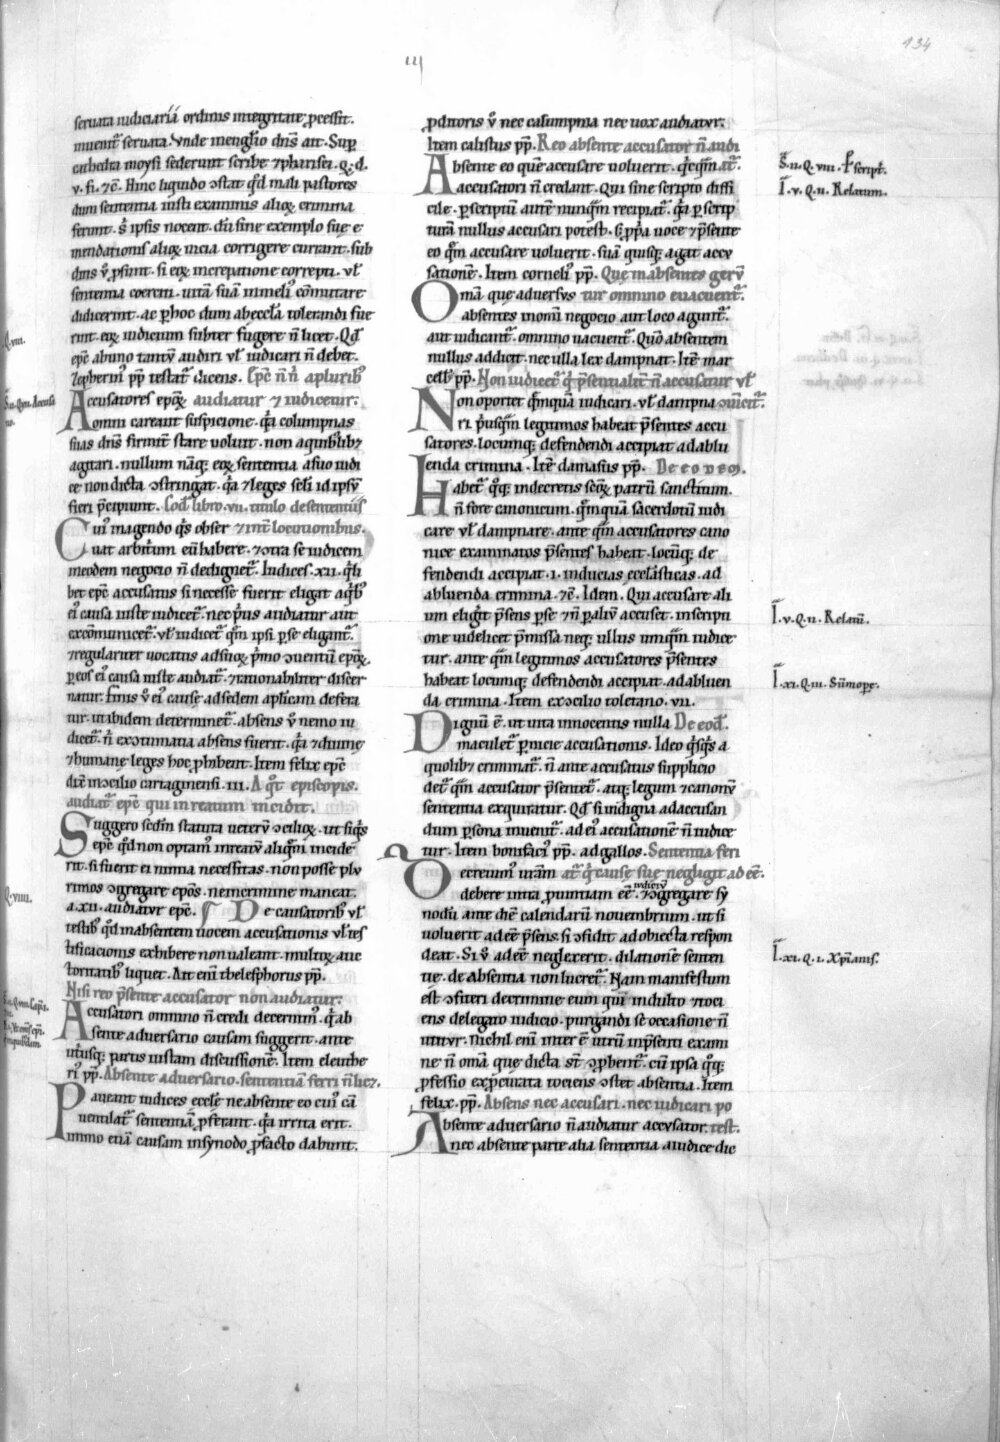 134
III
seruata iudiciarii ordinis integritate ꝓcessit.
inuenit̃ seruata. Vnde in euuangl̃io dñs ait. Suꝑ
cathedrã moysi sederunt scribe ⁊ pharisei. Q. d.
v. si. ⁊c̃. Hinc liquido ↄstat qd̃ mali pastores
dum sententia iusti examinis alioꝝ crimina
feriunt. s; ipsis nocent. dũ sine exemplo sue e
mendationis alioꝝ uicia corrigere curant. sub
ditis ũ ꝓsunt. si eoꝝ increpatione correpti. uł
sententia coerciti. uitã suã in meli᷒ cõmutare
didicerint. ac ꝑ hoc dum ab eccl̃a tolerandi fue
rint. eoꝝ iudicium subterfugere ñ licet. Qd̃
ep̃c ab uno tantũ audiri uł iudicari ñ debet.
Zepherin᷒ pp̃ testat̃ dicens. Ep̃c ñ ñ a plurib᷒
Accusatores ep̃oꝝ audiatur ⁊ iudicetur.
omni careant suspicione. q̃a columpnas
suas dñs firmit̃ stare uoluit. non a quibuslib;
agitari. nullum nãq; eoꝝ sententia a suo iudi
ce non dicta ↄstringat. q̃a ⁊ leges sc̃li id ipsũ
fieri p̃cipiunt. Cod̃. libro. vii. titulo de sententiis
Cui᷒ in agendo q̃s obser ⁊ int̃locutionibus.
uat arbitrium eũ habere. ⁊ ↄtra se iudicem
in eodem negocio ñ dedignet̃. Iudices. xii. q̃li
bet ep̃c accusatus si necesse fuerit eligat a q̃b᷒
ei᷒ causa iuste iudicet̃. nec p̃us audiatur aut
excõmunicet̃. uł iudicet̃ q̃m ipsi ꝑ se eligant̃.
⁊ regulariter uocatus ad suoꝝ p̃mo ↄuentũ ep̃oꝝ.
ꝑ eos ei᷒ causa iuste audiat̃. ⁊ rationabiliter discer
natur. Finis ũ ei᷒ cause ad sedem aplicam defera
tur. ut ibidem determinet̃. absens ũ nemo iu
dicet̃. ñ ex ↄtumatia absens fuerit. q̃a ⁊ diuine
⁊ humane leges hoc ꝓhibent. Item felix ep̃c
dix̃ in ↄcilio cartaginensi. iii. A q̃t episcopis.
audiat̃ ep̃c qui in reatum incidit.
Suggero sc̃dm statuta ueterũ ↄcilioꝝ. ut si q̃s
ep̃c qd̃ non optam᷒ in reatũ aliq̃m incide
rit. si fuerit ei nimia necessitas. non posse plu
rimos ↄgregare ep̃os. ne in crimine maneat.
a .xii. audiatur ep̃c. De causatorib᷒ uł
testib᷒ qd̃ in absentem uocem accusationis uł tes
tificacionis exhibere non ualeant. multoꝝ auc
toritatib᷒ liquet. Ait eni᷒ thelesphorus pp̃.
Nisi reo p̃sente accusator non audiatur.
Accusatori omnino ñ credi decernim᷒. q̃ ab
sente aduersario causam suggerit. ante
utriusq; partis iustam discussionẽ. Item eleuthe
ri᷒ pp̃. Absente aduersario. sententiam ferri ñ licz.
Caueant iudices eccl̃e ne absente eo cui᷒ cã
uentilat̃ sententiã ꝓferant. q̃a irrita erit.
immo etiã causam in synodo ꝓ facto dabunt.
ꝓditoris ũ nec calumpnia nec uox audiatur.
Item calistus pp̃. Reo absente accusator ñ audi
Absente eo quẽ accusare uoluerit. q̃cq̃m at̃.
accusatori ñ credant. Qui sine scripto diffi
cile. ꝑ scriptũ autẽ nunq̃m recipiat̃. q̃a ꝑ scrip
turã nullus accusari potest. s; ꝓpa uoce ⁊ p̃sente
eo q̃m accusare uoluerit. suã quisq; agat accu
sationẽ. Item corneli᷒ pp̃. Que in absentes gerũ
Omã que aduersus tur omnino euacuent̃.
absentes in omni negocio aut loco agunt̃.
aut iudicant̃. omnino uacuent̃. Quõ absentem
nullus addicit. nec ulla lex dampnat. Itẽ mar
cell᷒ pp̃. Non iudicet̃ q̃ p̃sentialit̃ ñ accusatur uł
Non oportet q̃mquã iudicari. uł dampna ↄuincit̃.
ri p̃usq̃m legitimos habeat p̃sentes accu
satores. locumq; defendendi accipiat ad ablu
enda crimina. Itẽ damasus pp̃. De eodem.
Habet̃ q̃q; in decretis sc̃oꝝ patrũ sanctitum.
ñ fore canonicum. q̃mquã sacerdotũ iudi
care uł dampnare. ante q̃m accusatores cano
nice examinatos p̃sentes habeat. locũq; de
fendendi accipiat .i. inducias eccl̃asticas. ad
abluenda crimina. ⁊c̃. Idem. Qui accusare ali
um elig̃it p̃sens ꝑ se ⁊ ñ ꝑ aliũ accuset. inscripti
one uidelicet p̃missa neq; ullus umq̃m iudice
tur. ante q̃m legitimos accusatores p̃sentes
habeat locumq; defendendi accipiat ad abluen
da crimina. Item ex ↄcilio toletano. vii.
Dignũ ẽ. ut uita innocentis nulla De eod̃.
maculet̃ ꝑnicie accusationis. Ideo q̃sq̃s a
quolib; criminat̃. ñ ante accusatus supplicio
det̃ q̃m accusator p̃sentet̃. atq; legum ⁊ canonũ
sententia exquiratur. Qd̃ si indigna ad accusan
dum ꝑsona inuenit̃. ad ei᷒ accusationẽ ñ iudice
tur. Item bonifaci᷒ pp̃. ad gallos. Sententia feri
Decreuim᷒ ur̃am at̃ q̃ cause sue neglugit ad eẽ.
debere intra ꝓuintiam eẽ. iudiciũ ↄgregare sy
nodũ ante diẽ calendarũ nouembrium. ut si
uoluerit ad eẽ p̃sens. si ↄfidit ad obiecta respon
deat. Si ũ ad eẽ neglexerit. dilatione senten
tie. de absentia non lucret̃. Nam manifestum
est ↄfiteri de crimine eum qui᷒ indulto ⁊ toci
ens delegato iudicio. purgandi se occasione ñ
utitur. Nichil eni᷒ inter ẽ utrũ in p̃senti exami
ne ñ omã que dicta st̃ ↄpbent̃. cũ ipsa q̃q;
ꝓfessio exp̃curata tociens ↄstet absentia. Item
felix. pp̃. Absens nec accusari. nec iudicari po
Absente aduersario ñ audiatur accusator. test.
nec absente parte alia sententia a iudice dic
Q. viii.
Q. viiii.
S̃. ii. Q. viii. ꝑ script̃.
I̅. v. Q. ii. Relatum.
I̅. v. Q. ii. Relatũ.
I̅. xi. Q. iii. Sũmopẽ.
I̅. xi. Q. i. Xp̃ianis.